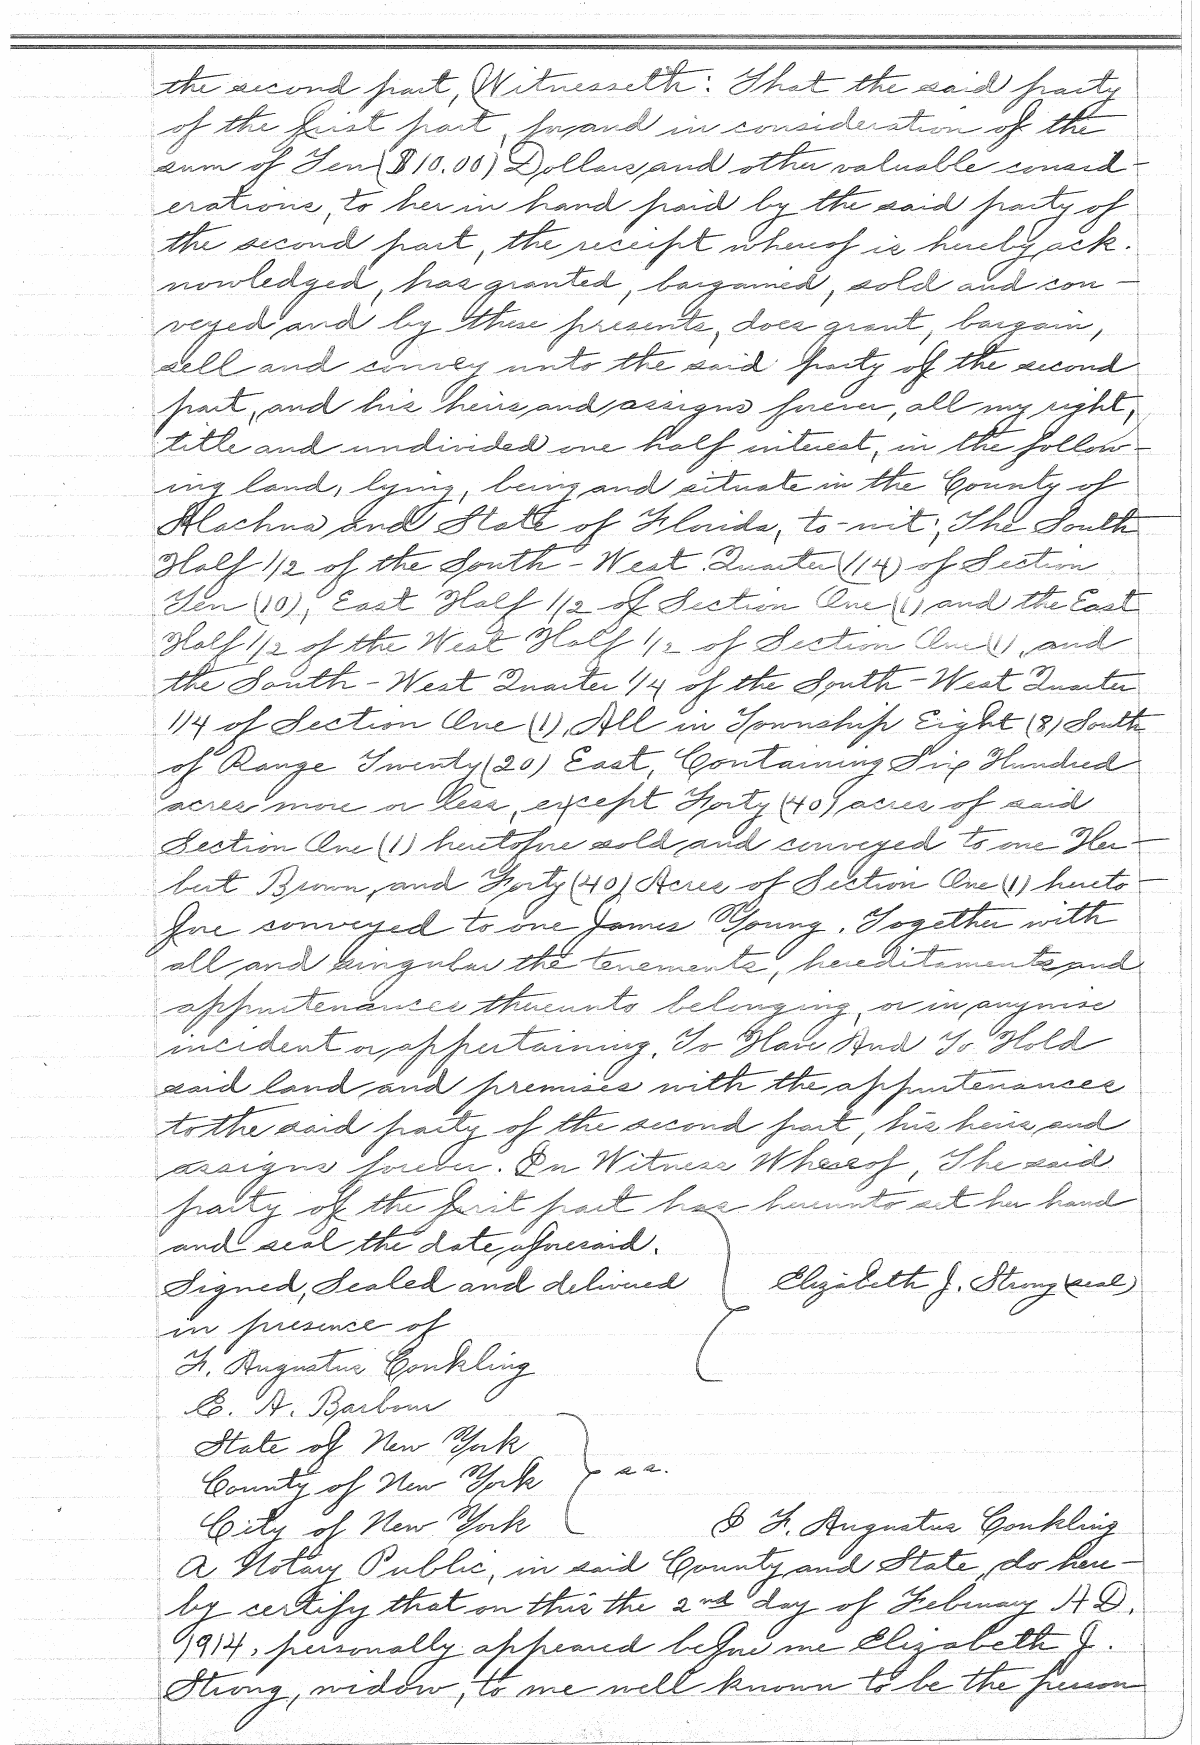 the second part, Witnesseth: That the said party
of the first part, for and in consideration of the
sum of Ten ($10.00) Dollars, and other valuable consid-
erations, to her in hand paid by the said party of
the second part, the receipt whereof is hereby ack.
nowledged, has granted, bargained, sold and con-
veyed and by these presents, does grant, bargain,
sell and convey unto the said party of the second
part, and his heirs and assigns forever, all my right,
title and undivided one half interest, in the follow-
ing land, lying, being and situate in the County of
Alachua and State of Florida, to-wit; The South
Half 1/2 of the South-West Quarter (1/4) of Section
Ten (10), East Half 1/2 of Section One (1) and the East
Half 1/2 of the West Half 1/2 of Section One (1), and
the South-West Quarter 1/4 of the South-West Quarter
1/4 of Section One (1), All in Township Eight (8) South
of Range Twenty (20) East, Containing Six Hundred
acres more or less, except Forty (40) acres of said
Section One (1) heretofore sold and conveyed to one Her-
bert Brown, and Forty (40) Acres of Section One (1) hereto-
fore conveyed to one James Young. Together with
all and singular the tenements, hereditaments and
appurtenances thereunto belonging, or in anywise
incident or appertaining. To Have And To Hold
said land and premises with the appurtenances
to the said party of the second part, his heirs and
assigns forever. In Witness Whereof, The said
party of the first part has hereunto set her hand
and seal the date aforesaid.
Signed, Sealed and delivered Elizabeth J. Strong (seal)
in presence of
F. Augustus Conkling
E. A. Barbour
State of New York
County of New York s s.
City of New York I F. Augustus Conkling
A Notary Public, in said County and State, do here-
by certify that on this the 2nd day of February A D.
1914, personally appeared before me Elizabeth J.
Strong, widow, to me well known to be the person